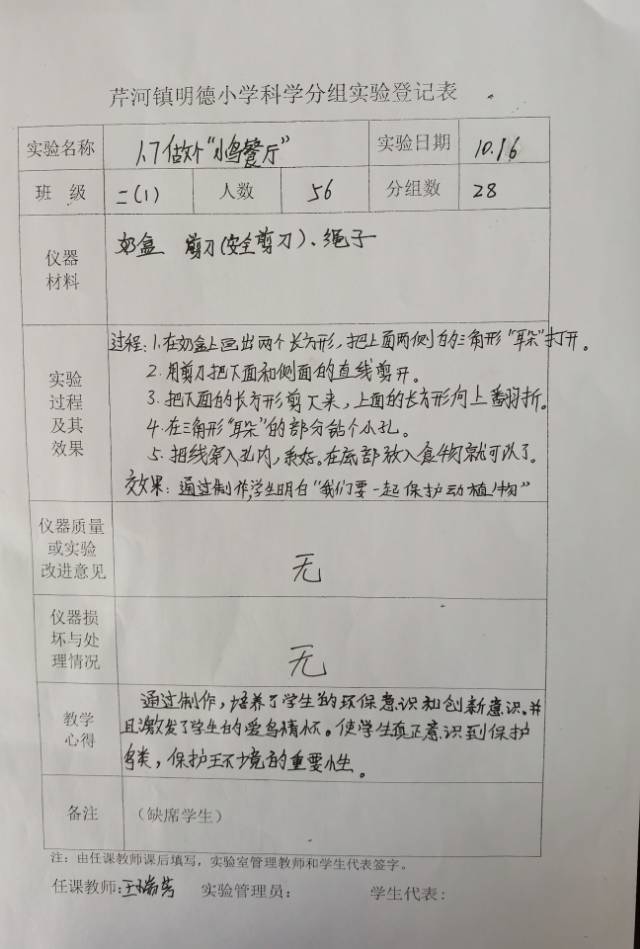 芹河镇明德小学科学分组实验登记表
实验名称 1.7做个"小鸟餐厅" 实验日期 10.16
班 级 二(1) 人数 56 分组数 28
仪器材料 奶盒 剪刀(安全剪刀)、绳子
实验过程及其效果
过程:1.在奶盒上画出两个长方形,把上面两侧的三角形"耳朵"打开。
2.用剪刀把下面和侧面的直线剪开。
3.把下面的长方形剪下来,上面的长方形向上翻折。
4.在三角形"耳朵"的部分钻个小孔。
5.把线穿入孔内,系好。在底部放入食物就可以了。
效果:通过制作,学生明白"我们要一起保护动植物"
仪器质量或实验改进意见 无
仪器损坏与处理情况 无
教学心得
通过制作,培养了学生的环保意识和创新意识。并
且激发了学生的爱鸟情怀。使学生真正意识到保护
鸟类,保护环境的重要性。
备注 (缺席学生)
注:由任课教师课后填写,实验室管理教师和学生代表签字。
任课教师:王瑞芳 实验管理员: 学生代表: